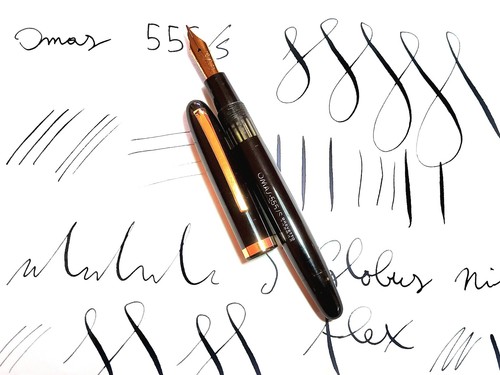 Omas 555/S
OMAS 555/S
Globus ni
flex